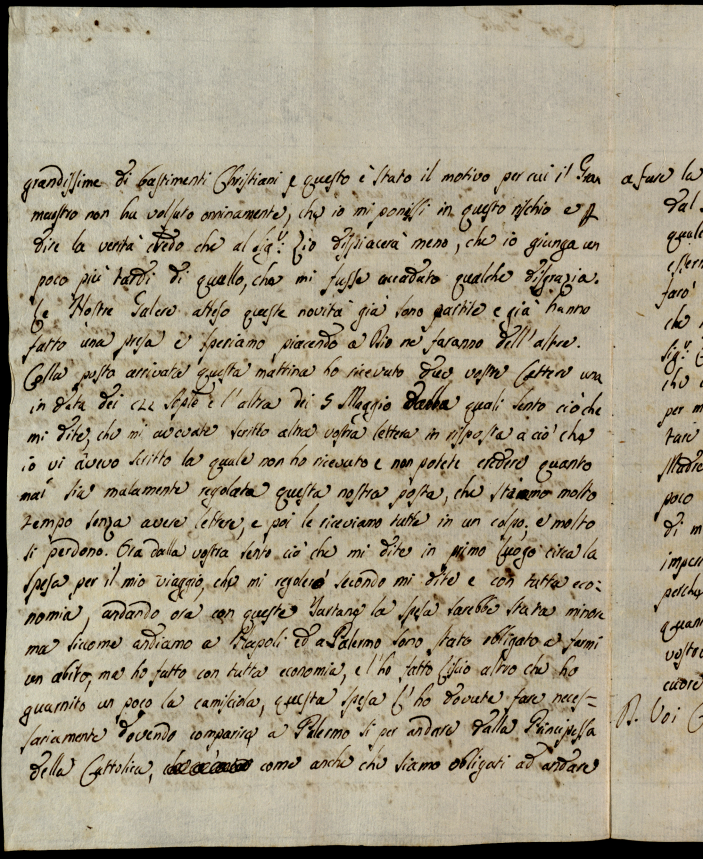 grandissime di bastimenti Christiani e questo è stato il motivo per cui il Gran
maestro non ha volsuto onninamente, che io mi ponessi in questo rischio e p
dire la verità credo che al Sig.r Zio dispiacerà meno, che io giunga un
poco più tardi di quello, che mi fusse accaduto qualche disgrazia.
Le Nostre Galere atteso queste novità già sono partite e già hanno
fatto una presa e speriamo piacendo a Dio ne faranno dell'altre.
Colla posta arrivata questa mattina ho ricevuto due vostre lettere una
in data dei 22 e l'altra dei 5 Maggio dalla quali sento ciò che
mi dite, che mi avevate scritto altra vostra lettera in risposta a ciò che
io vi avevo scritto la quale non ho ricevuto e non potete credere quanto
mai sia malamente regolata questa nostra posta, che stiamo molto
tempo senza avere lettere, e poi le riceviamo tutte in un colpo, e molte
si perdono. Ora dalla vostra sento ciò che mi dite in primo luogo circa la
spesa per il mio viaggio, che mi regolerò secondo mi dite e con tutta eco:
nomia, andando ora con queste Tartane la spesa sarebbe stata minore
ma siccome andiamo a Napoli ed a Palermo sono stato obligato a farmi
un abito, ma ho fatto con tutta economia, e l'ho fatto liscio altro che ho
guarnito un poco la camisciola, questa spesa l'ho dovuta fare neces=
sariamente dovendo comparire a Palermo si per andare dalla Principessa
della Cattolica, come anche che siamo obligati ad andare
a fare la
dal
quale
farò
che
Sig.r
che
per m
tare
Madre
poco
di m
perche
quan
vostr
cuore
Voi